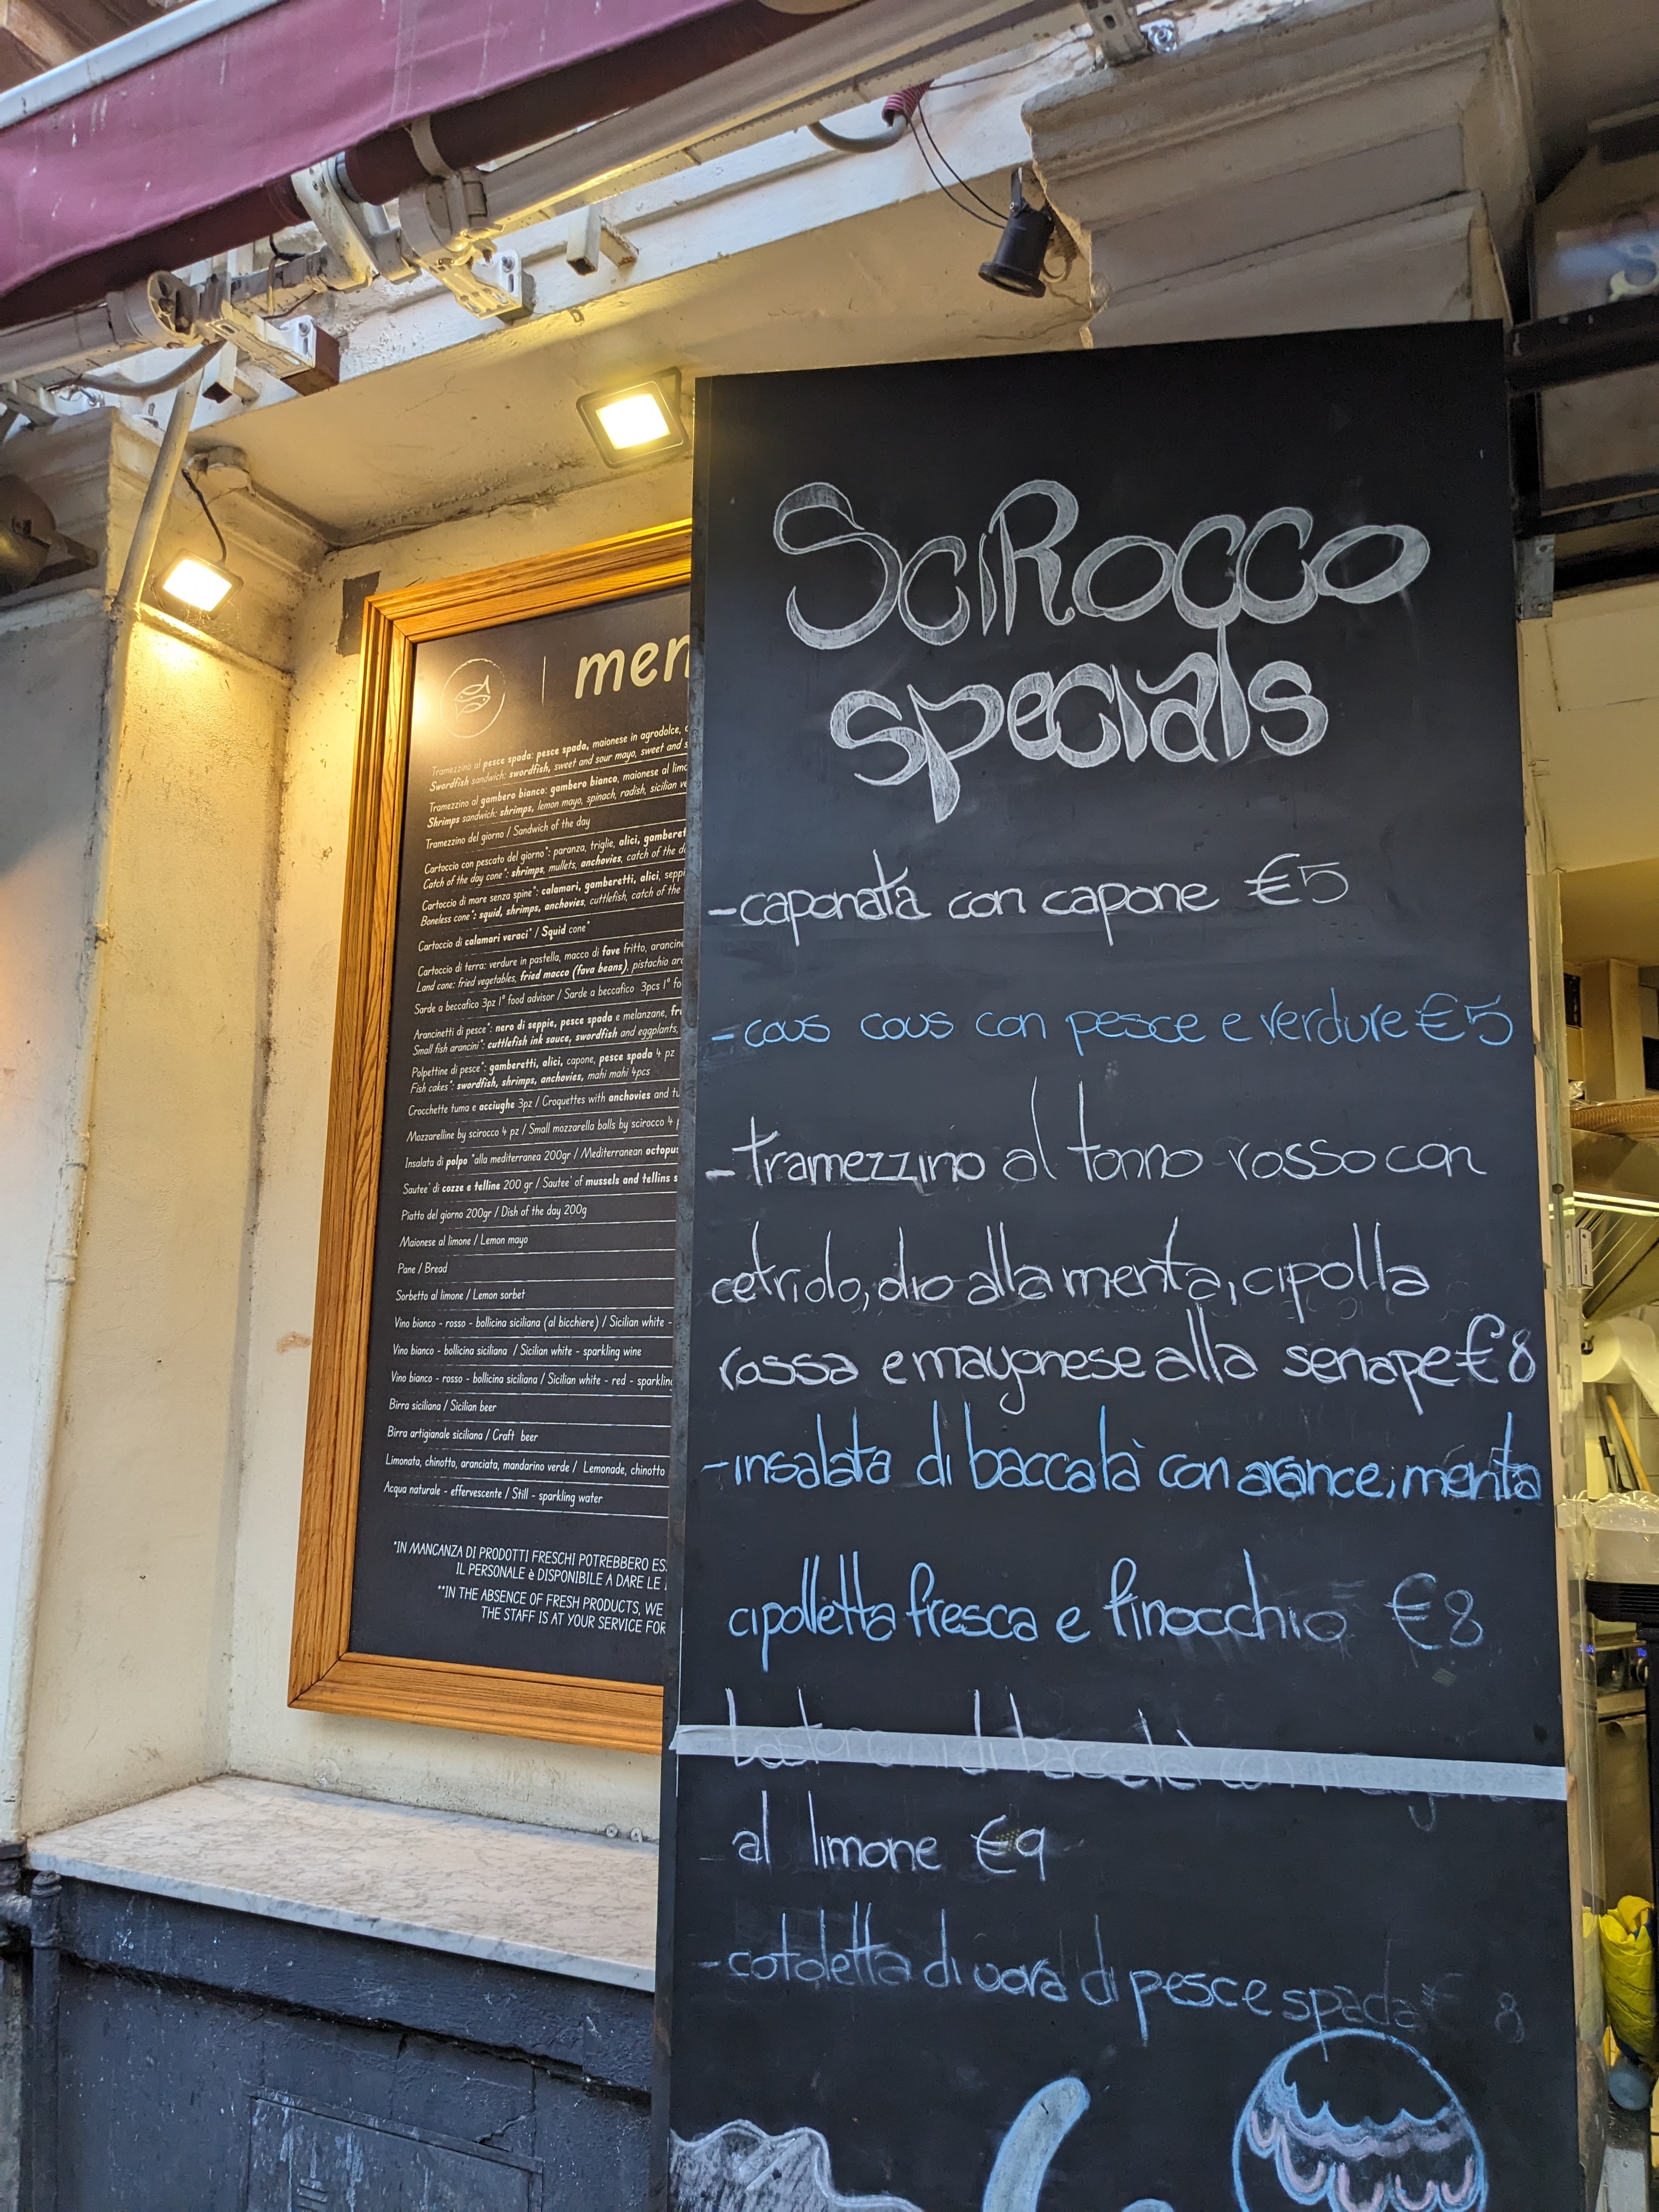 men
Tramezzino al pesce spada: pesce spada, maionese in agrodolce,
Swordfish sandwich: swordfish, sweet and sour mayo, sweet and
Tramezzino al gambero bianco: gambero bianco, maionese al
Shrimps sandwich: shrimps, lemon mayo, spinach, radish, sicilian
Tramezzino del giorno / Sandwich of the day
Cartoccio con pescato del giorno*: paranza, triglie, alici,
Catch of the day cone*: shrimps, mullets, anchovies, catch of the
Cartoccio di mare senza spine*: calamari, gamberetti, alici,
Boneless cone*: squid, shrimps, anchovies, cuttlefish, catch of the
Cartoccio di calamari veraci* / Squid cone*
Cartoccio di terra: verdure in pastella, macco di fave fritto,
Land cone: fried vegetables, fried macco (fava beans), pistachio
Sarde a beccafico 3pz 1° food advisor / Sarde a beccafico 3pcs 1°
Arancinetti di pesce*: nero di seppie, pesce spada e melanzane,
Small fish arancini*: cuttlefish ink sauce, swordfish and eggplants,
Polpettine di pesce*: gamberetti, alici, capone, pesce spada 4 pz
Fish cakes*: swordfish, shrimps, anchovies, mahi mahi 4pcs
Crocchette tuma e acciughe 3pz / Croquettes with anchovies and
Mozzarelline by scirocco 4 pz / Small mozzarella balls by scirocco 4
Insalata di polpo *alla mediterranea 200gr / Mediterranean
Sautee' di cozze e telline 200 gr / Sautee' of mussels and tellins
Piatto del giorno 200gr / Dish of the day 200g
Maionese al limone / Lemon mayo
Pane / Bread
Sorbetto al limone / Lemon sorbet
Vino bianco - rosso - bollicina siciliana (al bicchiere) / Sicilian white -
Vino bianco - bollicina siciliana / Sicilian white - sparkling wine
Vino bianco - rosso - bollicina siciliana / Sicilian white - red - sparkling
Birra siciliana / Sicilian beer
Birra artigianale siciliana / Craft beer
Limonata, chinotto, aranciata, mandarino verde / Lemonade, chinotto
Acqua naturale - effervescente / Still - sparkling water
*IN MANCANZA DI PRODOTTI FRESCHI POTREBBERO
IL PERSONALE è DISPONIBILE A DARE LE
**IN THE ABSENCE OF FRESH PRODUCTS, WE
THE STAFF IS AT YOUR SERVICE FOR
SciRocco
specials
-caponata con capone €5
-cous cous con pesce e verdure €5
-tramezzino al tonno rosso con
cetriolo, olio alla menta, cipolla
rossa e mayonese alla senape €8
-insalata di baccalà con arance, menta
cipolletta fresca e finocchio €8
di baccalà con
al limone €9
-cotoletta di uova di pesce spada € 8